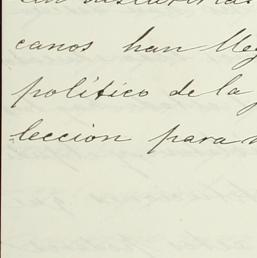 canos han lleg
político de la
lección para